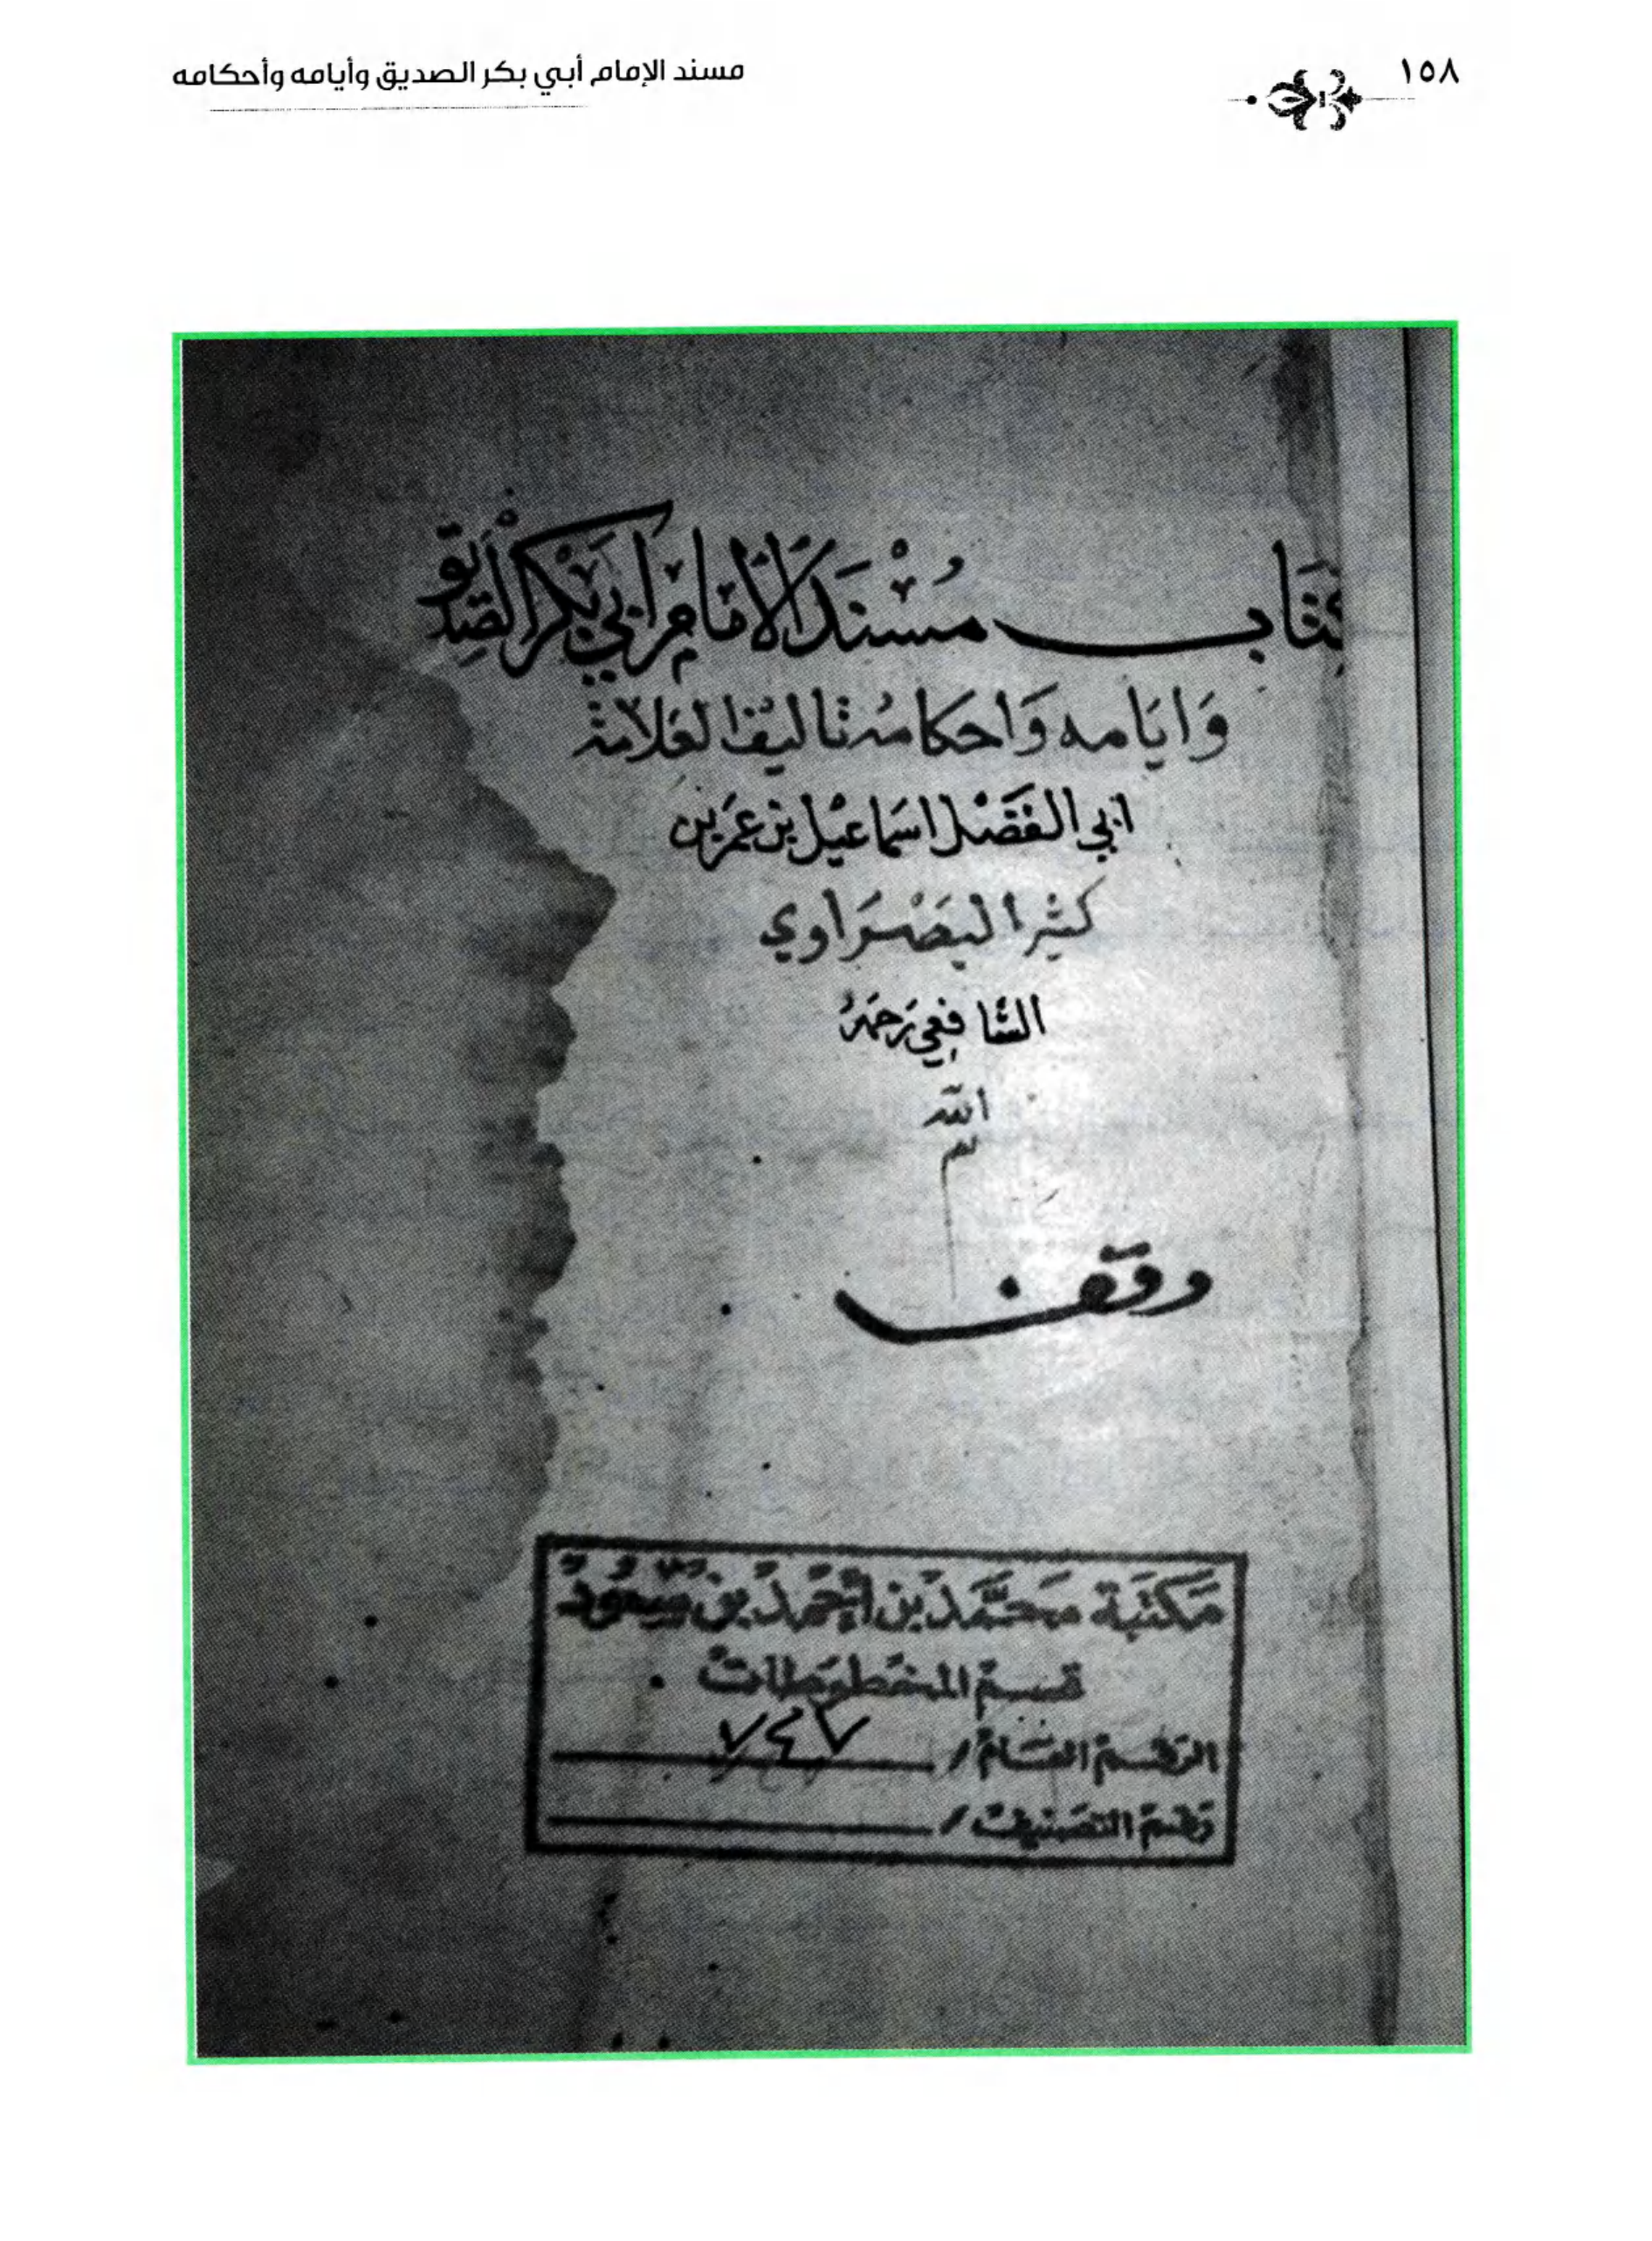 ١٥٨
مسند الإمام أبي بكر الصديق وأيامه وأحكامه
كتاب مُسْنَد الامام ابي بكر الصديق
وَايَامه وَاحكامه تاليف العَلامة
ابي الفَضْل اسماعيْل بن عمَر بن
كثير البَصْرَاوي
الشافعي رَحمَهُ
الله
وقف
مَكتَبة محَمَّد بن أحْمَد بن سَعُود
قسم المخطوطات
الرقم العَام / ٧٤٧
رقم التصنيف /